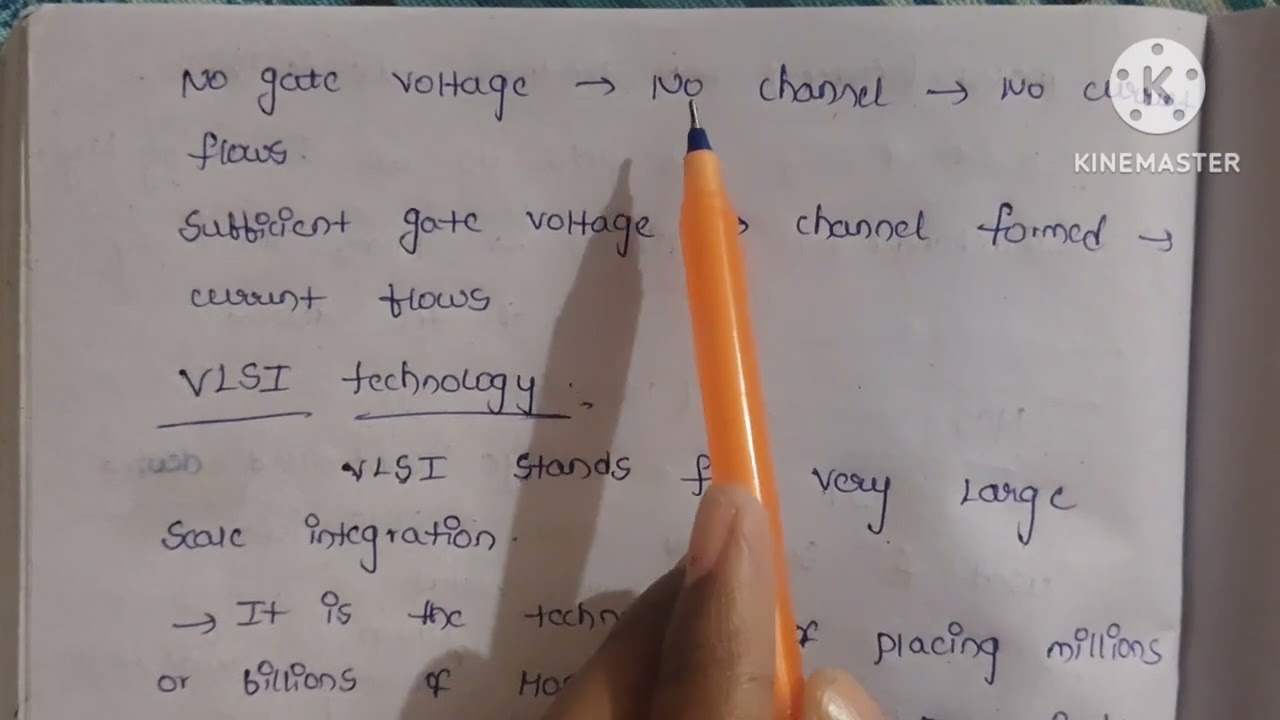 No gate voltage → No channel → No current
flows.
Sufficient gate voltage → channel formed →
current flows.
VLSI technology:
VLSI stands for very Large
Scale integration.
→ It is the of placing millions
or billions of
KINEMASTER